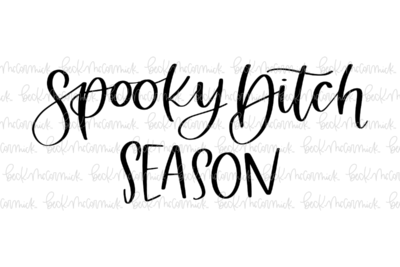 Spooky bitch
SEASON